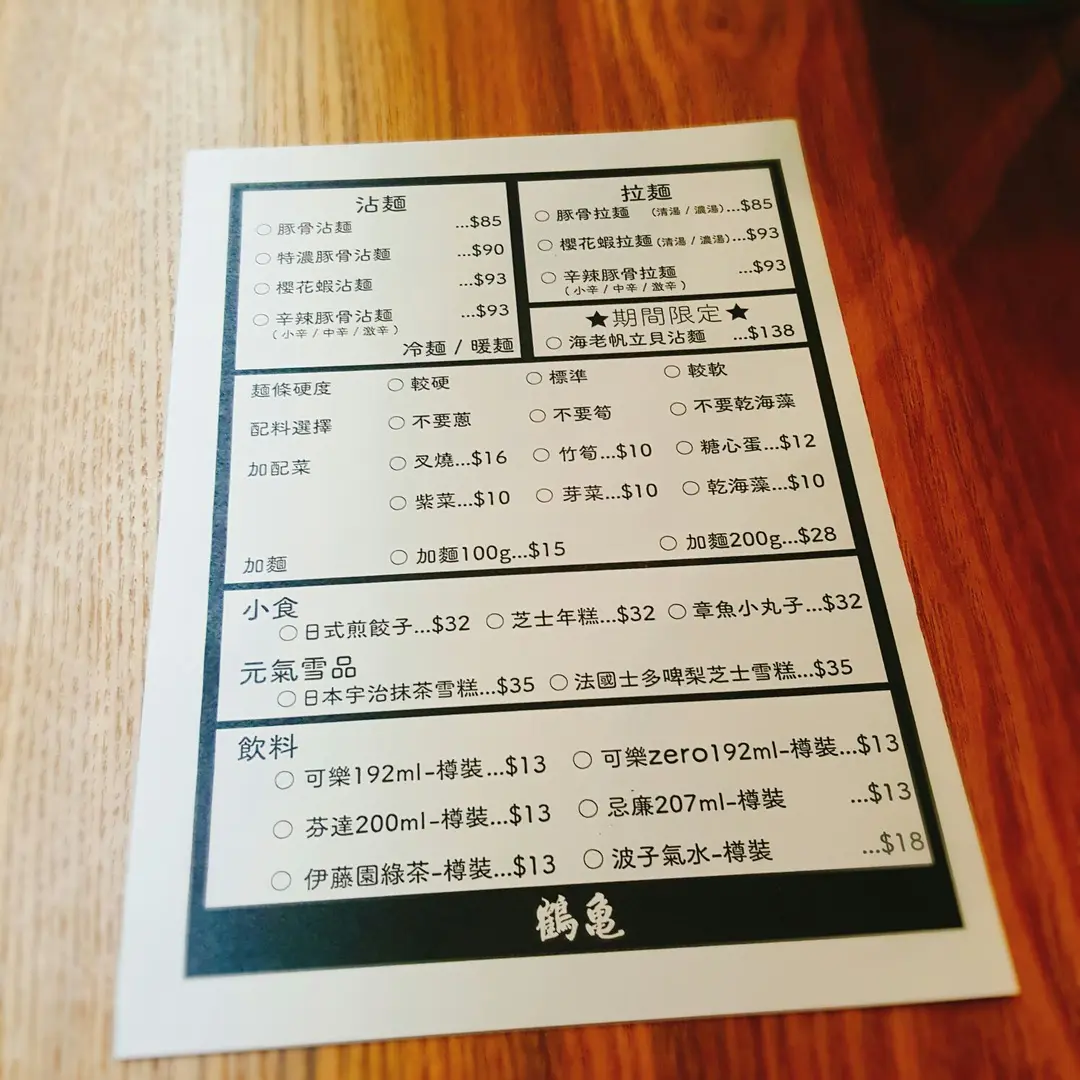 沾麵
○ 豚骨沾麵 ...$85
○ 特濃豚骨沾麵 ...$90
○ 櫻花蝦沾麵 ...$93
○ 辛辣豚骨沾麵 ...$93
(小辛 / 中辛 / 激辛)
冷麵 / 暖麵
拉麵
○ 豚骨拉麵 (清湯 / 濃湯)...$85
○ 櫻花蝦拉麵 (清湯 / 濃湯)...$93
○ 辛辣豚骨拉麵 ...$93
(小辛 / 中辛 / 激辛)
★期間限定★
○ 海老帆立貝沾麵 ...$138
麵條硬度 ○ 較硬 ○ 標準 ○ 較軟
配料選擇 ○ 不要蔥 ○ 不要筍 ○ 不要乾海藻
加配菜 ○ 叉燒...$16 ○ 竹筍...$10 ○ 糖心蛋...$12
○ 紫菜...$10 ○ 芽菜...$10 ○ 乾海藻...$10
加麵 ○ 加麵100g...$15 ○ 加麵200g...$28
小食
○ 日式煎餃子...$32 ○ 芝士年糕...$32 ○ 章魚小丸子...$32
元氣雪品
○ 日本宇治抹茶雪糕...$35 ○ 法國士多啤梨芝士雪糕...$35
飲料
○ 可樂192ml-樽裝...$13 ○ 可樂zero192ml-樽裝...$13
○ 芬達200ml-樽裝...$13 ○ 忌廉207ml-樽裝 ...$13
○ 伊藤園綠茶-樽裝...$13 ○ 波子氣水-樽裝 ...$18
鶴亀